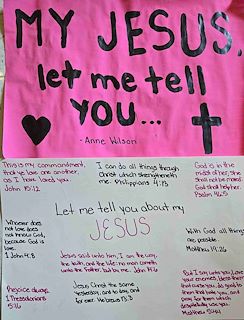 MY JESUS,
let me tell
YOU...
- Anne Wilson
This is my commandment,
that ye love one another,
as I have loved you.
John 15:12
I can do all things through
Christ which strengtheneth
me. Philippians 4:13
God is in the
midst of her; she
shall not be moved:
God shall help her.
Psalm 46:5
Whoever does
not love does
not know God,
because God is
love.
1 John 4:8
Let me tell you about my
JESUS
With God all things
are possible.
Matthew 19:26
Jesus said unto him, I am the way,
the truth, and the life: no man cometh
unto the Father, but by me. John 14:6
Rejoice always.
1 Thessalonians
5:16
Jesus Christ the same
yesterday, and to day, and
for ever. Hebrews 13:8
But I say unto you, Love
your enemies, bless them
that curse you, do good to
them that hate you, and
pray for them which
despitefully use you
Matthew 5:44